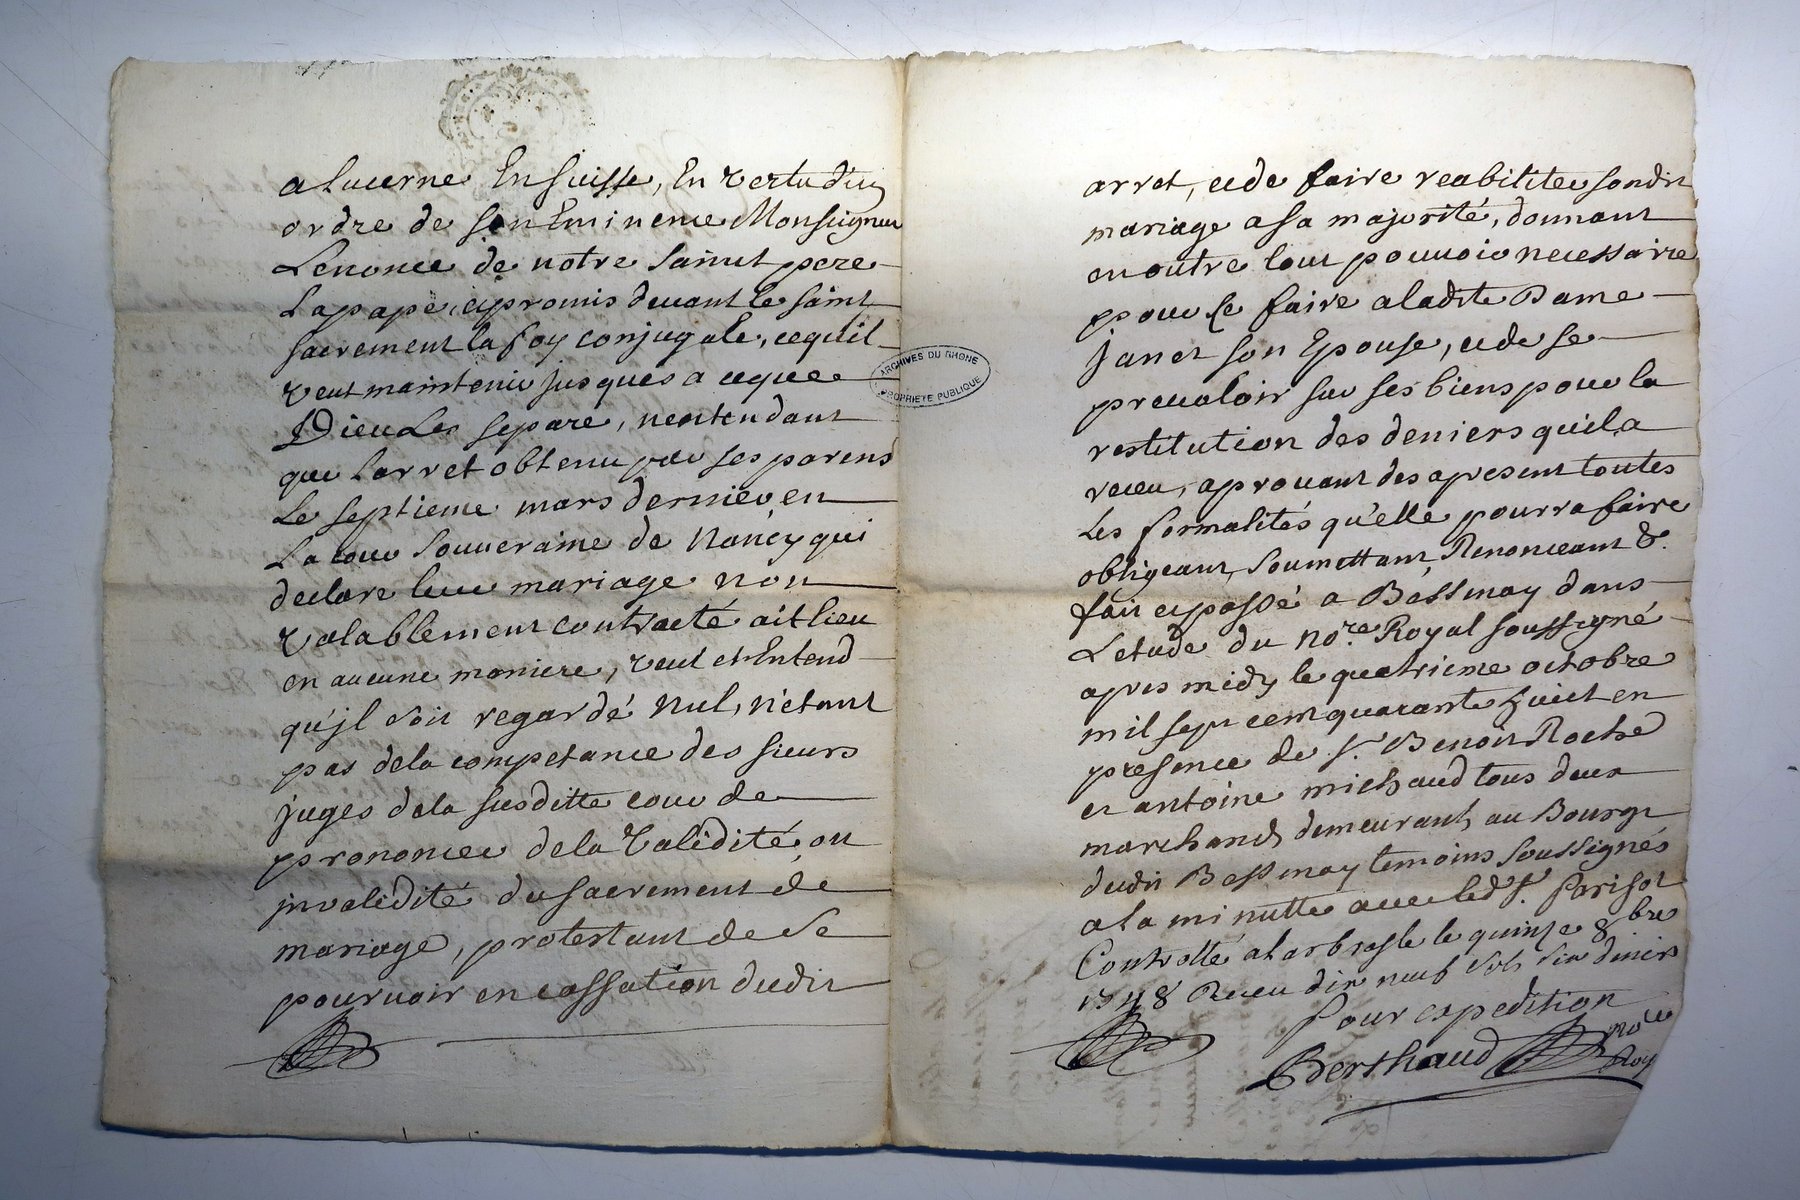 a Lucerne En Suisse, En vertu d'un
ordre de son Eminence Monseigneur
Le nonce de notre Saint pere
Le pape, et promis devant le saint
sacrement la foy conjugale, ce qu'il
veut maintenir jusques a ce que
Dieu Les separe, n'entendant
que L'arret obtenu par ses parens
Le septieme mars dernier en
La cour souveraine de Nancy qui
declare leur mariage non
valablement contracté ait lieu
en aucune maniere, veut et Entend
qu'jl soit regardé nul, n'étant
pas de la competance des sieurs
juges de la susditte cour de
prononcer de la validité, ou
jnvalidité du sacrement de
mariage, protestant de se
pourvoir en cassation dudit
ARCHIVES DU RHONE
PROPRIETE PUBLIQUE
arret, et de faire reabiliter sondit
mariage a sa majorité, donnant
en outre tout pouvoir necessaire
pour ce faire a ladite Dame
Janet son Epouse, et de se
prevaloir sur ses biens pour la
restitution des deniers qu'il a
receu, aprouvant des apresent toutes
Les formalités qu'elle pourra faire
obligeant, Soumettant, Renonceant &.
fait et passé a Bessenay dans
L'etude du no.re Royal soussigné
apres midy le quatrieme octobre
mil sept cent quarante huit en
presence de s.r Benoit Roche
et antoine michaud tous deux
marchands demeurants au Bourg
dudit Bessenay temoins soussignés
a la minutte avec led. s.r Parisot
Controllé a Larbresle le quinze 8bre
1748 Receu dix neuf sols six deniers
Pour expedition
Berthaud no.re
Roy